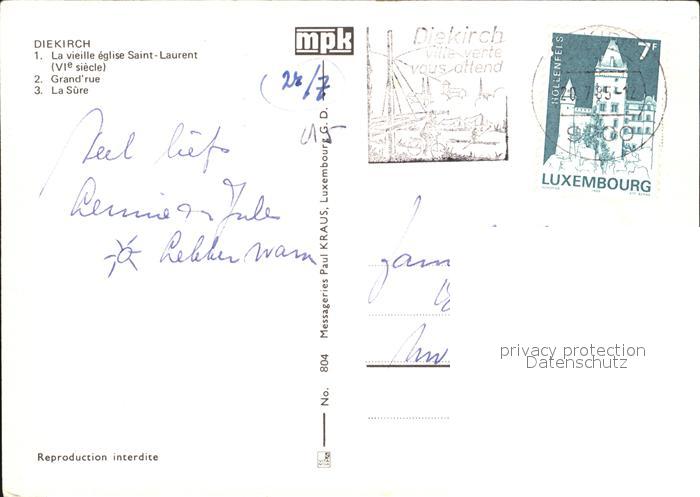 DIEKIRCH
1. La vieille église Saint-Laurent
(VIe siècle)
2. Grand'rue
3. La Sûre
mpk
Diekirch
ville verte
vous attend
HOLLENFELS
7F
LUXEMBOURG
Veel liefs
Lennie en Jules
Lekker warm
No. 804 Messageries Paul KRAUS, Luxembourg G. D.
privacy protection
Datenschutz
Reproduction interdite